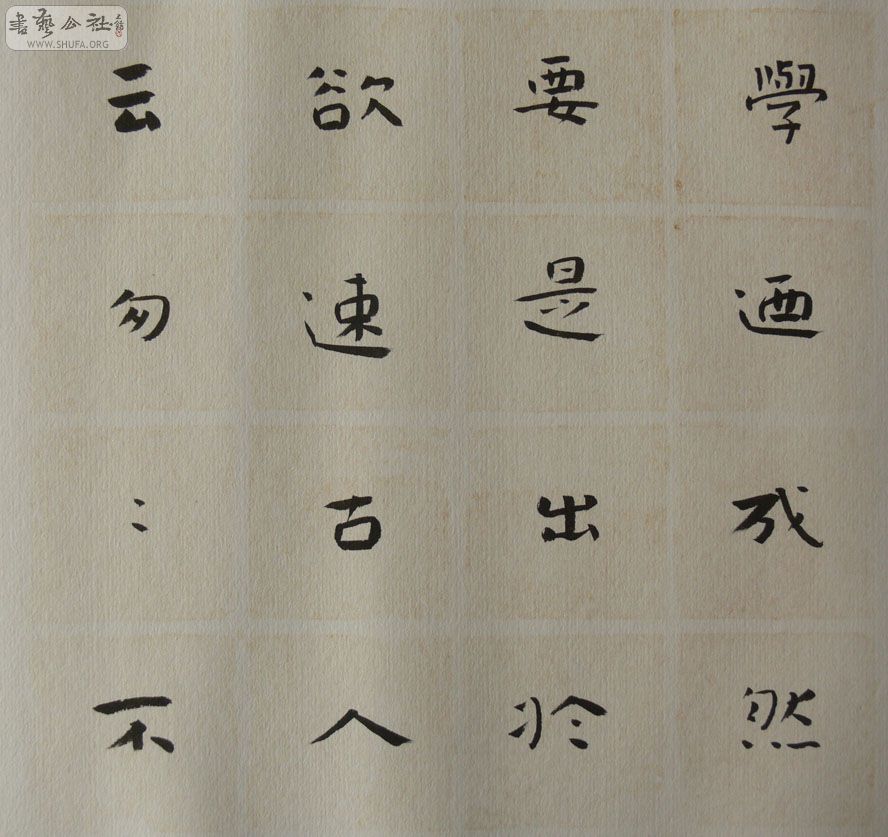 書藝公社
WWW.SHUFA.ORG
學迺成然
要是出於
欲速古人
云匆〻不